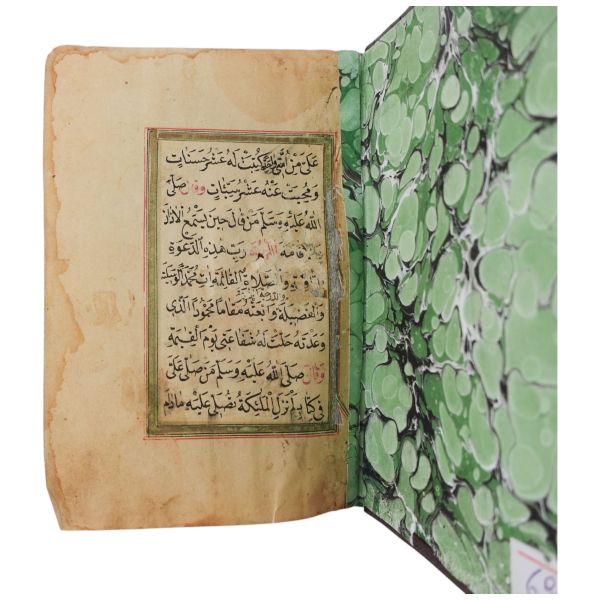 عَلَىَّ كُتِبَتْ لَهُ عَشْرُ حَسَنَاتٍ
وَمُحِيَتْ عَنْهُ عَشْرُ سَيِّئَاتٍ وَقَالَ صَلَّى
اللهُ عَلَيْهِ وَسَلَّمَ مَنْ قَالَ حِينَ يَسْمَعُ الْاَذَانَ
اَللّهُمَّ رَبَّ هٰذِهِ الدَّعْوَةِ
وَالصَّلَاةِ الْقَائِمَةِ اٰتِ مُحَمَّدًا الْوَسِيلَةَ
وَالْفَضِيلَةَ وَابْعَثْهُ مَقَامًا مَحْمُودًا الَّذِى
وَعَدْتَهُ حَلَّتْ لَهُ شَفَاعَتِى يَوْمَ الْقِيٰمَةِ
وَقَالَ صَلَّى اللهُ عَلَيْهِ وَسَلَّمَ مَنْ صَلَّى عَلَىَّ
فِى كِتَابٍ لَمْ تَزَلِ الْمَلٰئِكَةُ تُصَلِّى عَلَيْهِ مَادَامَ